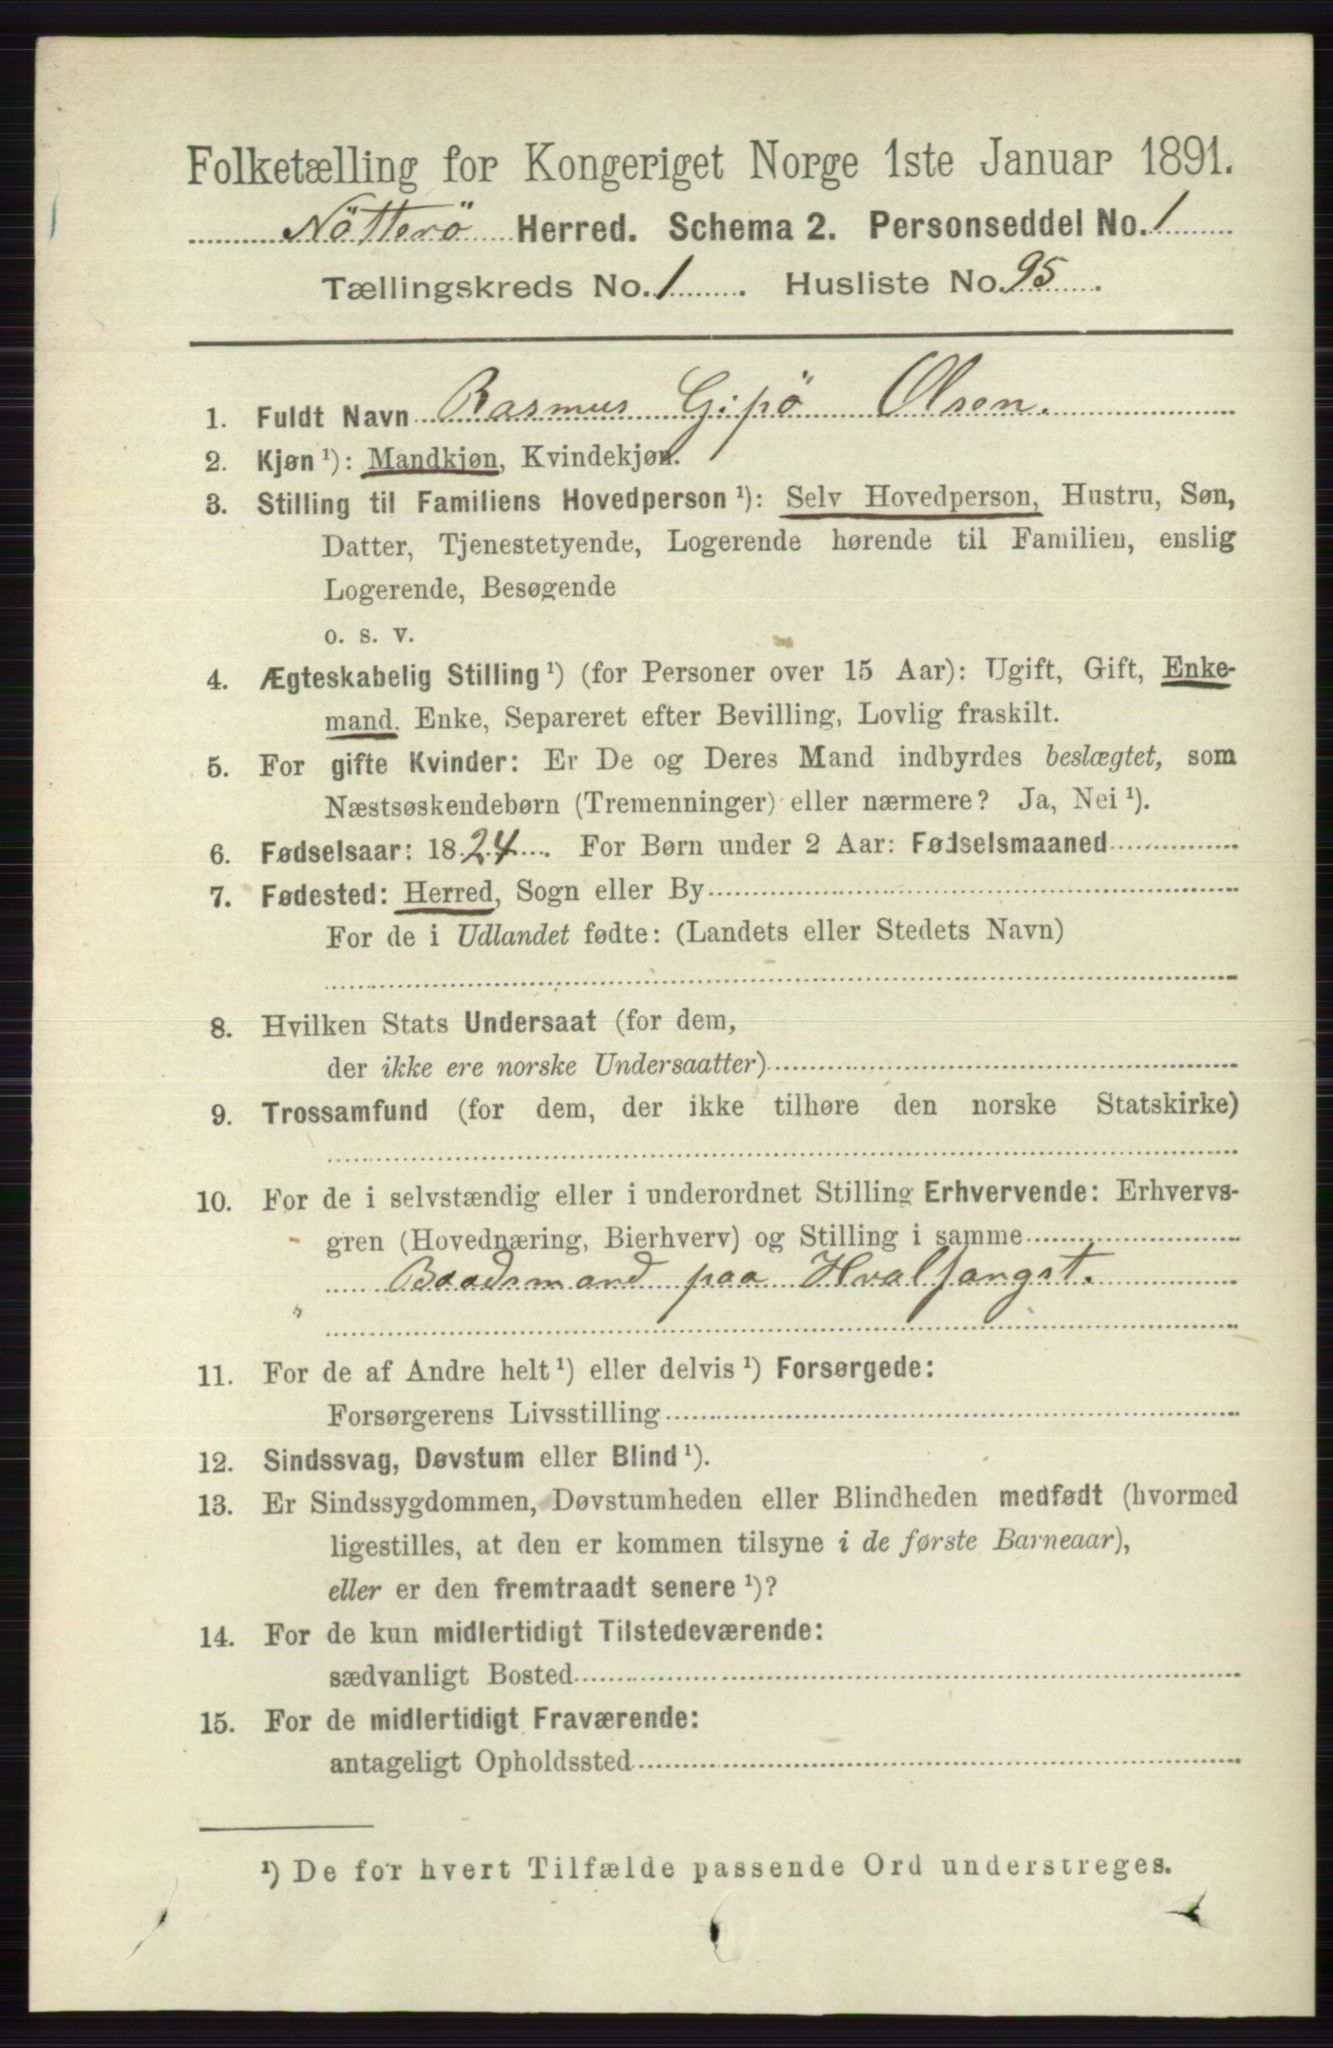 Folketælling for Kongeriget Norge 1ste Januar 1891.
Nötterö Herred. Schema 2. Personseddel No. 1
Tællingskreds No. 1. Husliste No. 95.
1. Fuldt Navn Rasmus Gipö Olsen.
2. Kjøn ¹): Mandkjøn, Kvindekjøn.
3. Stilling til Familiens Hovedperson ¹): Selv Hovedperson, Hustru, Søn,
Datter, Tjenestetyende, Logerende hørende til Familien, enslig
Logerende, Besøgende
o. s. v.
4. Ægteskabelig Stilling ¹) (for Personer over 15 Aar): Ugift, Gift, Enke-
mand, Enke, Separeret efter Bevilling, Lovlig fraskilt.
5. For gifte Kvinder: Er De og Deres Mand indbyrdes beslægtet, som
Næstsøskendebørn (Tremenninger) eller nærmere? Ja, Nei ¹).
6. Fødselsaar: 1824. For Børn under 2 Aar: Fødselsmaaned
7. Fødested: Herred, Sogn eller By
For de i Udlandet fødte: (Landets eller Stedets Navn)
8. Hvilken Stats Undersaat (for dem,
der ikke ere norske Undersaatter)
9. Trossamfund (for dem, der ikke tilhøre den norske Statskirke)
10. For de i selvstændig eller i underordnet Stilling Erhvervende: Erhvervs-
gren (Hovednæring, Bierhverv) og Stilling i samme
Baadsmand paa Hvalfangst.
11. For de af Andre helt ¹) eller delvis ¹) Forsørgede:
Forsørgerens Livsstilling
12. Sindssvag, Døvstum eller Blind ¹).
13. Er Sindssygdommen, Døvstumheden eller Blindheden medfødt (hvormed
ligestilles, at den er kommen tilsyne i de første Barneaar),
eller er den fremtraadt senere ¹)?
14. For de kun midlertidigt Tilstedeværende:
sædvanligt Bosted
15. For de midlertidigt Fraværende:
antageligt Opholdssted
¹) De for hvert Tilfælde passende Ord understreges.